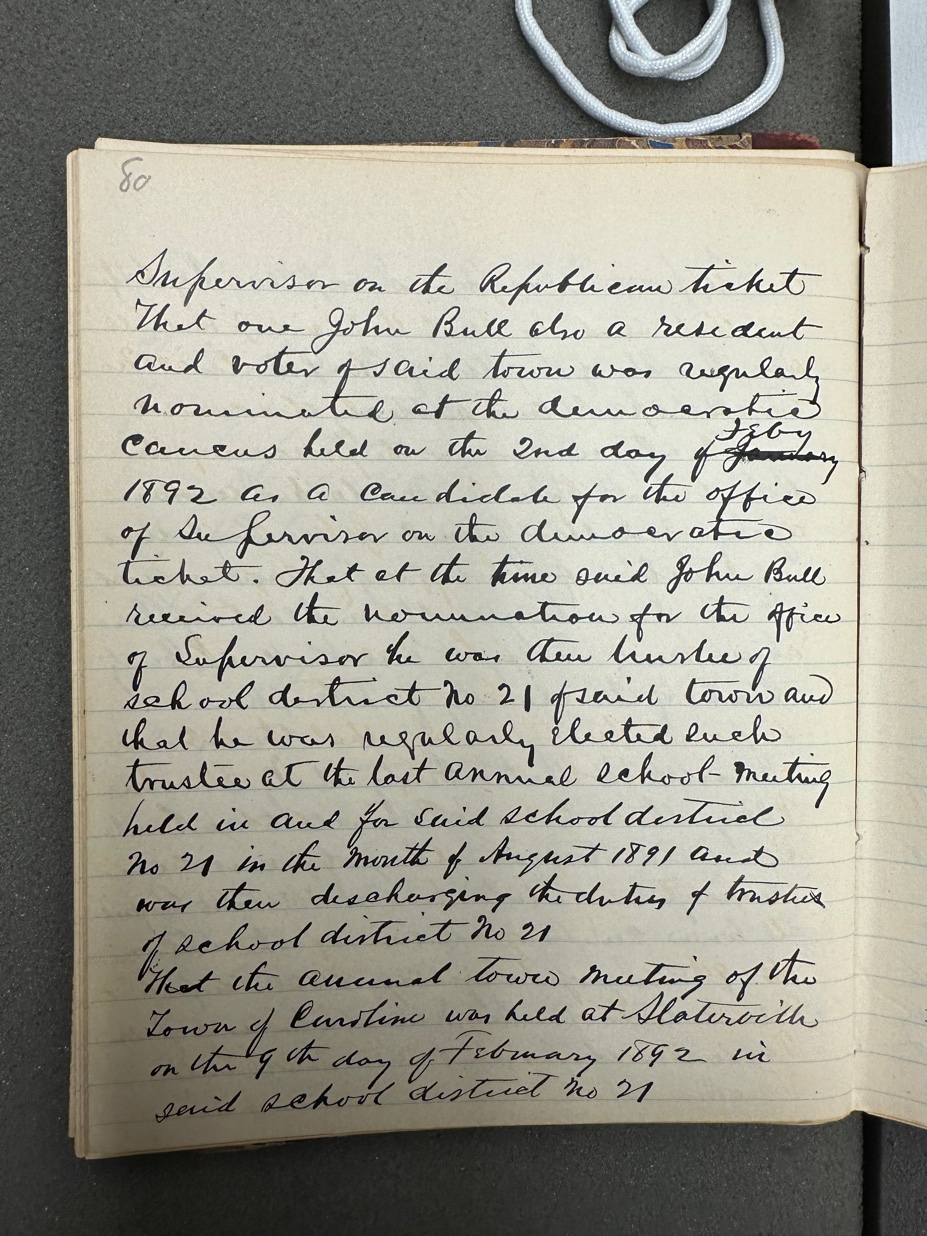 80
Supervisor on the Republican ticket
That one John Bull also a resident
and voter of said town was regularly
nominated at the democratic
Feby
caucus held on the 2nd day of January
1892 as a candidate for the office
of Supervisor on the democratic
ticket. That at the time said John Bull
received the nomination for the office
of Supervisor he was then trustee of
school district No 21 of said town and
that he was regularly elected such
trustee at the last annual school-meeting
held in and for said school district
No 21 in the month of August 1891 and
was then discharging the duties of trustee
of school district No 21
That the annual town meeting of the
Town of Caroline was held at Slaterville
on the 9th day of February 1892 in
said school district No 21